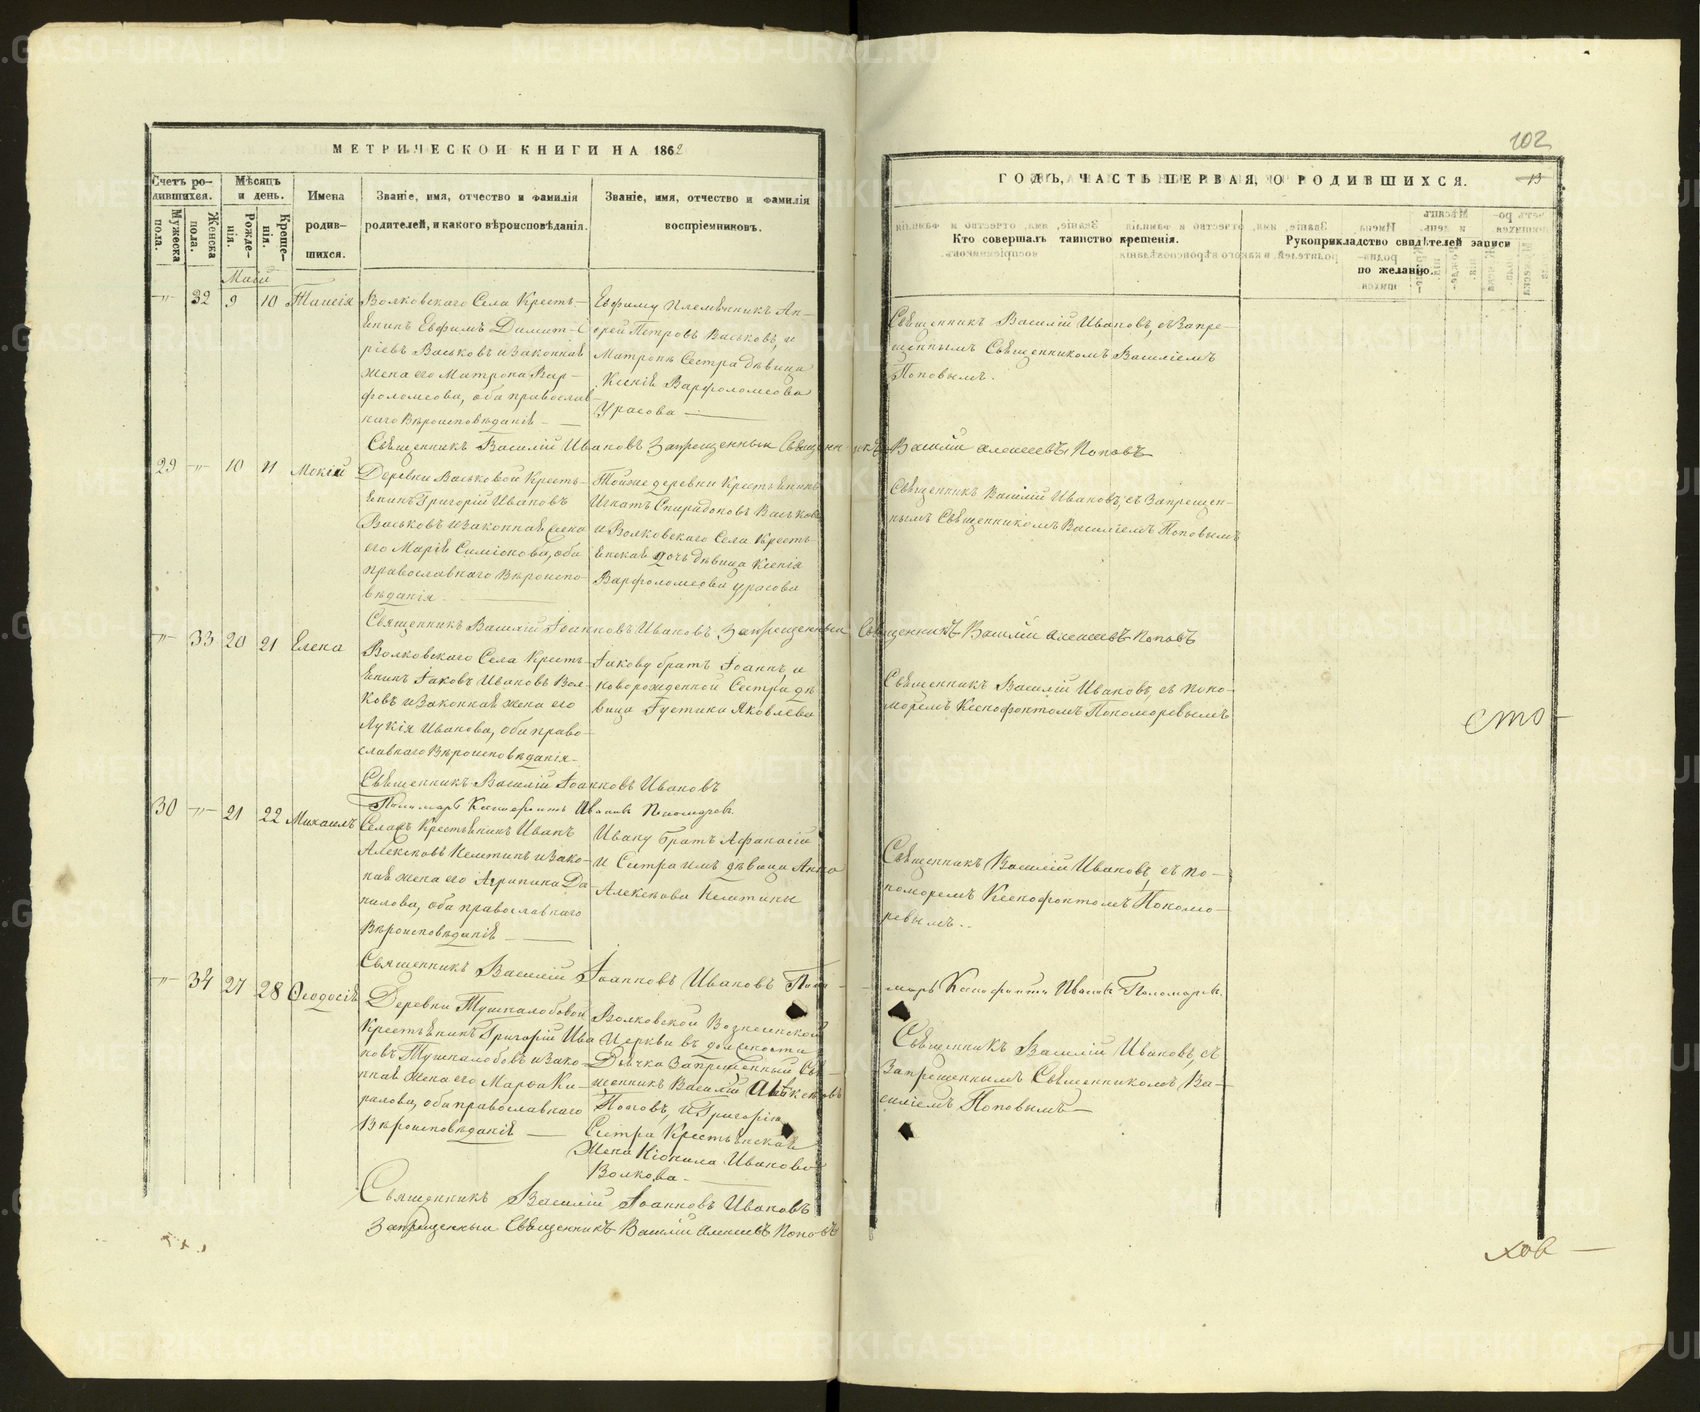 МЕТРИЧЕСКОЙ КНИГИ НА 1862
Счетъ ро-
дившихся.
Мѣсяцъ
и день.
Мужеска
пола.
Женска
пола.
Рожде-
нія.
Креще-
нія.
Имена
родив-
шихся.
Званіе, имя, отчество и фамилія
родителей, и какого вѣроисповѣданія.
Званіе, имя, отчество и фамилія
воспріемниковъ.
Маій
-„- 32 9 10 Таисія
Волковскаго Села Кресть-
янинъ Евфимъ Димит-
ріевъ Васьковъ и законная
жена его Матрона Вар-
фоломеова, оба православ-
наго Вѣроисповѣданія —
Евфиму племянникъ Ан-
дрей Петровъ Васьковъ, и
Матроны Сестра дѣвица
Ксенія Варфоломеова
Урасова —
Священникъ Василій Ивановъ Запрещенный Священникъ Василій Алексеевъ Поповъ
29 -„- 10 11 Мокій
Деревни Васьковой Кресть-
янинъ Григорій Ивановъ
Васьковъ и законная жена
его Марія Симіонова, оба
православнаго Вѣроиспо-
вѣданія —
Тойже деревни Крестьянинъ
Игнатъ Спиридоновъ Васьковъ
и Волковскаго Села Кресть-
янская дочь дѣвица Ксенія
Варфоломеова Урасова
Священникъ Василій Іоанновъ Ивановъ Запрещенный Священникъ Василій Алексеевъ Поповъ
-„- 33 20 21 Елена
Волковскаго Села Кресть-
янинъ Іаковъ Ивановъ Вол-
ковъ и законная жена его
Лукія Иванова, оба право-
славнаго Вѣроисповѣданія.
Іакову братъ Іоаннъ, и
новорожденной Сестра дѣ-
вица Густина Яковлева
Священникъ Василій Іоанновъ Ивановъ
Пономарь Ксенофонтъ Ивановъ Пономаревъ.
30 -„- 21 22 Михаилъ
Села Крестьянинъ Иванъ
Алексіовъ и зако-
ная жена его Агрипина Да-
нилова, оба православнаго
Вѣроисповѣданія —
Ивану братъ Афанасій
и Сестра имъ дѣвица Анна
Алексіовы
Священникъ Василій Іоанновъ Ивановъ Пономарь Ксенофонтъ Ивановъ Пономаревъ.
-„- 34 27 28 Ѳеодосія
Деревни Тушналобовой
Крестьянинъ Григорій Ива-
новъ Тушналобовъ и зако-
нная жена его Марѳа Ки-
рилова, оба православнаго
Вѣроисповѣданія —
Волковской Вознесенской
Церкви въ должности
Дьячка Запрещенный Свя-
щенникъ Василій Алексѣевъ
Поповъ, и Григорію
Сестра Крестьянская
Жена Неонила Иванова
Волкова. —
Священникъ Василій Іоанновъ Ивановъ
Запрещенный Священникъ Василій Алексеевъ Поповъ
102
13
ГОДЪ, ЧАСТЬ ПЕРВАЯ, О РОДИВШИХСЯ.
Кто совершалъ таинство крещенія.
Рукоприкладство свидѣтелей записи
по желанію.
Священникъ Василій Ивановъ, съ Запре-
щеннымъ Священникомъ Василіемъ
Поповымъ.
Священникъ Василій Ивановъ, съ Запрещен-
нымъ Священникомъ Василіемъ Поповымъ
Священникъ Василій Ивановъ, съ поно-
моремъ Ксенофонтомъ Пономоревымъ
сто-
Священникъ Василій Ивановъ, съ по-
номоремъ Ксенофонтомъ Пономо-
ревымъ.
Священникъ Василій Ивановъ, съ
Запрещеннымъ Священникомъ Ва-
силіемъ Поповымъ —
хов —
METRIKI.GASO-URAL.RU